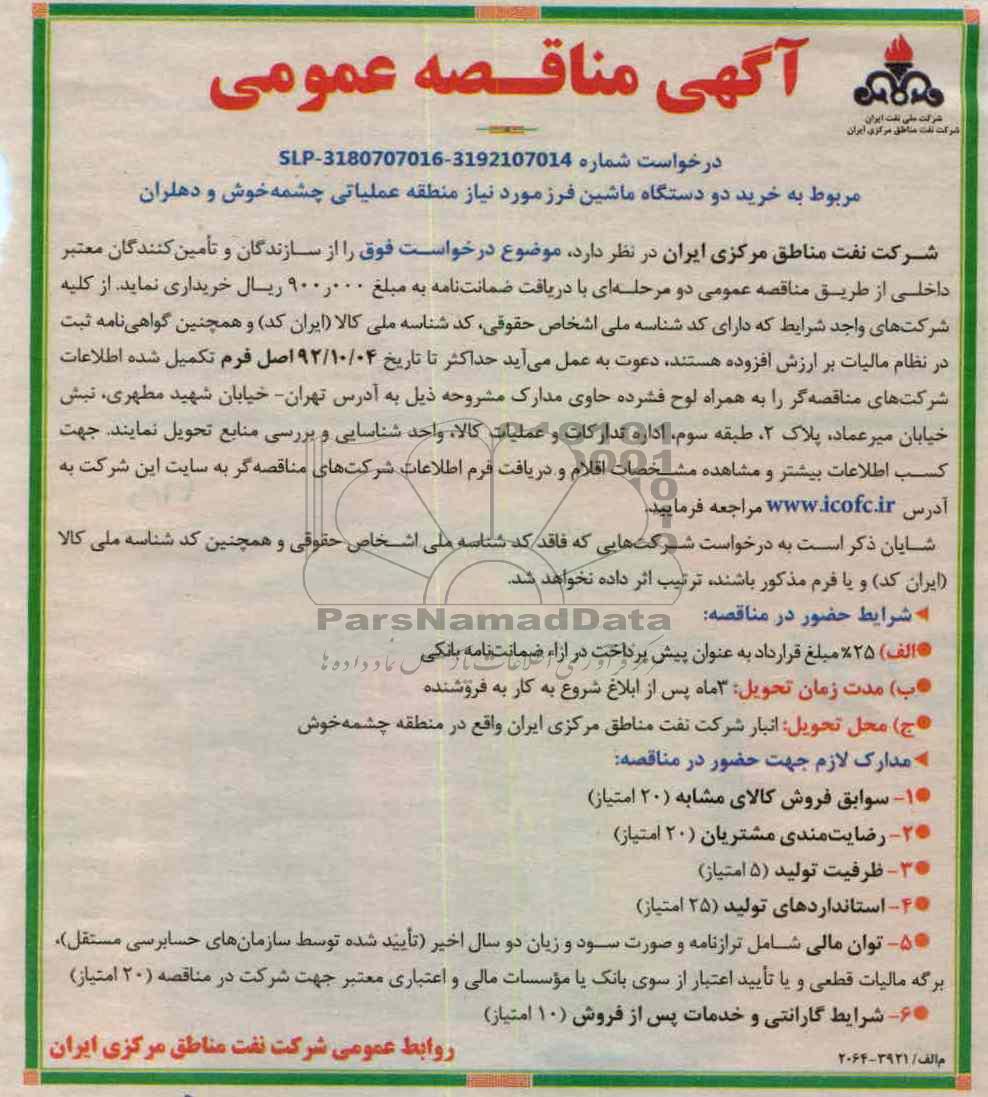 آگهی مناقصه عمومی
شرکت ملی نفت ایران
شرکت نفت مناطق مرکزی ایران
درخواست شماره SLP-3180707016-3192107014
مربوط به خرید دو دستگاه ماشین فرز مورد نیاز منطقه عملیاتی چشمه‌خوش و دهلران
شرکت نفت مناطق مرکزی ایران در نظر دارد، موضوع درخواست فوق را از سازندگان و تأمین‌کنندگان معتبر
داخلی از طریق مناقصه عمومی دو مرحله‌ای با دریافت ضمانت‌نامه به مبلغ ۹۰۰٫۰۰۰ ریال خریداری نماید. از کلیه
شرکت‌های واجد شرایط که دارای کد شناسه ملی اشخاص حقوقی، کد شناسه ملی کالا (ایران کد) و همچنین گواهی‌نامه ثبت
در نظام مالیات بر ارزش افزوده هستند، دعوت به عمل می‌آید حداکثر تا تاریخ ۹۲/۱۰/۰۴ اصل فرم تکمیل شده اطلاعات
شرکت‌های مناقصه‌گر را به همراه لوح فشرده حاوی مدارک مشروحه ذیل به آدرس تهران- خیابان شهید مطهری، نبش
خیابان میرعماد، پلاک ۲، طبقه سوم، اداره تدارکات و عملیات کالا، واحد شناسایی و بررسی منابع تحویل نمایند. جهت
کسب اطلاعات بیشتر و مشاهده مشخصات اقلام و دریافت فرم اطلاعات شرکت‌های مناقصه‌گر به سایت این شرکت به
آدرس www.icofc.ir مراجعه فرمایید.
شایان ذکر است به درخواست شرکت‌هایی که فاقد کد شناسه ملی اشخاص حقوقی و همچنین کد شناسه ملی کالا
(ایران کد) و یا فرم مذکور باشند، ترتیب اثر داده نخواهد شد.
ParsNamadData
◄شرایط حضور در مناقصه:
●الف) ۲۵٪ مبلغ قرارداد به عنوان پیش پرداخت در ازاء ضمانت‌نامه بانکی
●ب) مدت زمان تحویل: ۳ماه پس از ابلاغ شروع به کار به فروشنده
●ج) محل تحویل: انبار شرکت نفت مناطق مرکزی ایران واقع در منطقه چشمه‌خوش
◄مدارک لازم جهت حضور در مناقصه:
●۱- سوابق فروش کالای مشابه (۲۰ امتیاز)
●۲- رضایت‌مندی مشتریان (۲۰ امتیاز)
●۳- ظرفیت تولید (۵ امتیاز)
●۴- استانداردهای تولید (۲۵ امتیاز)
●۵- توان مالی شامل ترازنامه و صورت سود و زیان دو سال اخیر (تأیید شده توسط سازمان‌های حسابرسی مستقل)،
برگه مالیات قطعی و یا تأیید اعتبار از سوی بانک یا مؤسسات مالی و اعتباری معتبر جهت شرکت در مناقصه (۲۰ امتیاز)
●۶- شرایط گارانتی و خدمات پس از فروش (۱۰ امتیاز)
روابط عمومی شرکت نفت مناطق مرکزی ایران
م‌الف/ ۳۹۲۱-۲۰۶۴